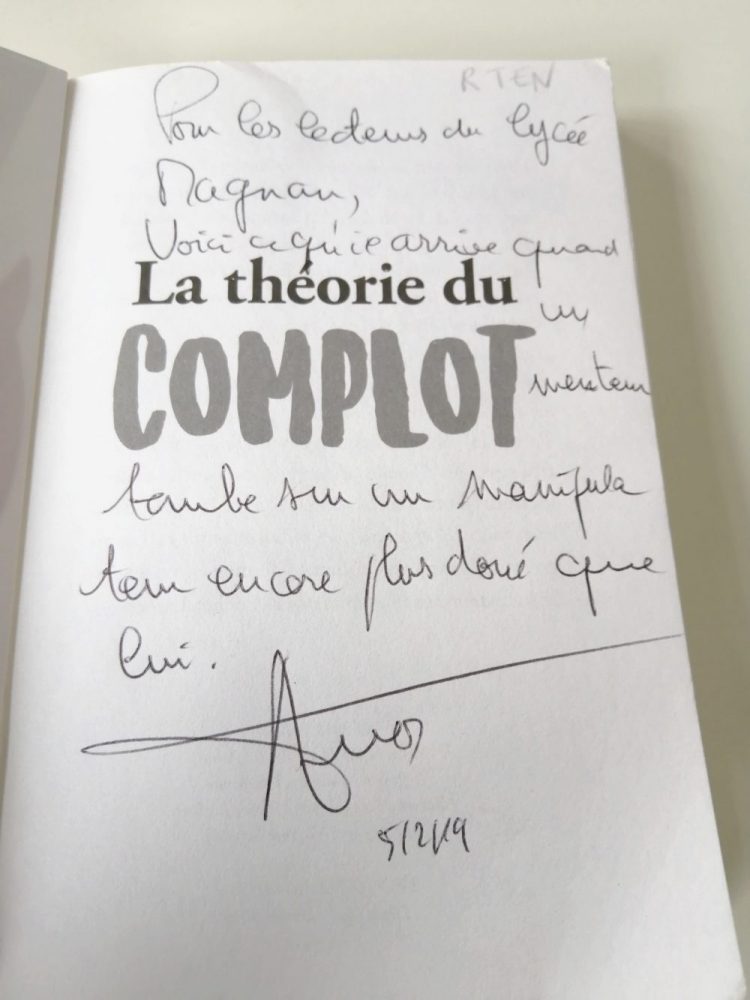 R TEN
Pour les lecteurs du lycée
Magnan,
Voici ce qu'il arrive quand
La théorie du
un
COMPLOT
menteur
tombe sur un manipula
teur encore plus doué que
lui.
5/2/19